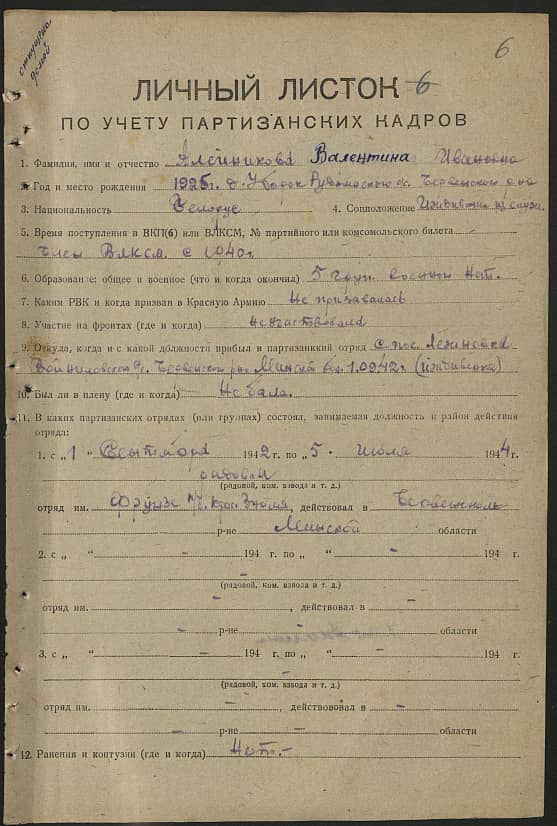 отпущена
домой
6
ЛИЧНЫЙ ЛИСТОК 6
ПО УЧЕТУ ПАРТИЗАНСКИХ КАДРОВ
1. Фамилия, имя и отчество Алейникова Валентина Ивановна
2. Год и место рождения 1925г. д. Уборок Червенского р-на
3. Национальность Белорус 4. Соцположение Иждивенка
5. Время поступления в ВКП(б) или ВЛКСМ, № партийного или комсомольского билета
Член ВЛКСМ с 1940г.
6. Образование: общее и военное (что и когда окончил) 5 груп. военного Нет.
7. Каким РВК и когда призван в Красную Армию Не призавалась
8. Участие на фронтах (где и когда) не участвовала
9. Откуда, когда и с какой должности прибыл в партизанкий отряд с пос. Лениновка
Войниловского с/с. Червенского р-на Минской 1.09.42г. (иждивенка)
10. Был ли в плену (где и когда) Не была.
11. В каких партизанских отрядах (или группах) состоял, занимаемая должность и район действия
отряда:
1. с „1“ Сентября 1942г. по „5“ июля 1944г.
рядовой
(рядовой, ком. взвода и т. д.)
отряд им. Фрунзе п/б. Крас. Знамя, действовал в Червенском
р-не Минской области
2. с „ “ - 194 г. по „ “ - 194 г.
-
(рядовой, ком. взвода и т. д.)
отряд им. - , действовал в -
- р-не области
3. с „ “ - 194 г. по „ “ - 194 г.
(рядовой, ком. взвода и т. д.)
отряд им. - , действововал в -
- р-не - области
12. Ранения и контузии (где и когда) Нет. -